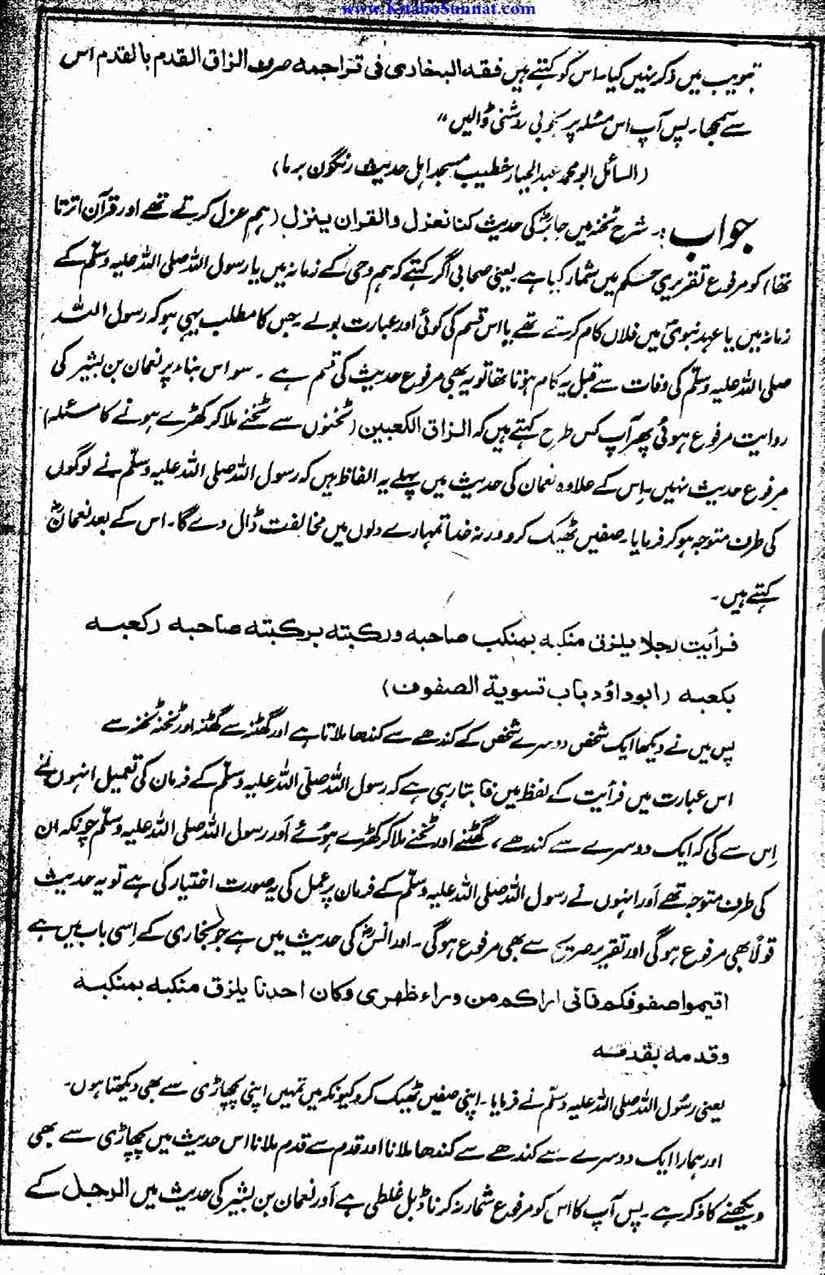 www.KitaboSunnat.com
تبویب میں ذکر نہیں کیا۔ اس کو کہتے ہیں فقه البخاری فی تراجمه صرف الزاق القدم بالقدم اس
سے سمجھا۔ پس آپ اس مسئلہ پر بخوبی روشنی ڈالیں"
(السائل ابو محمد عبدالجبار خطیب مسجد اہل حدیث رنگون برما)
جواب :۔ شرح نخبہ میں جابرؓ کی حدیث کنا نعزل والقران ینزل (ہم عزل کرتے تھے اور قرآن اترتا
تھا) کو مرفوع تقریری حکم میں شمار کیا ہے یعنی صحابی اگر کہے کہ ہم وحی کے زمانہ میں یا رسول اللہ صلی اللہ علیہ وسلم کے
زمانہ میں یا عہد نبویؐ میں فلاں کام کرتے تھے یا اس قسم کی کوئی اور عبارت بولے۔ جس کا مطلب یہی ہو کہ رسول اللہ
صلی اللہ علیہ وسلم کی وفات سے قبل یہ کام ہوتا تھا تو یہ بھی مرفوع حدیث کی قسم ہے ۔ سو اس بناء پر نعمان بن بشیر کی
روایت مرفوع ہوئی پھر آپ کس طرح کہتے ہیں کہ الزاق الکعبین (ٹخنوں سے ٹخنے ملا کر کھڑے ہونے کا مسئلہ)
مرفوع حدیث نہیں۔ اس کے علاوہ نعمان کی حدیث میں پہلے یہ الفاظ ہیں کہ رسول اللہ صلی اللہ علیہ وسلم نے لوگوں
کی طرف متوجہ ہو کر فرمایا۔ صفیں ٹھیک کرو ورنہ خدا تمہارے دلوں میں مخالفت ڈال دے گا۔ اس کے بعد نعمانؓ
کہتے ہیں۔
فرأیت رجلا یلزق منکبه بمنکب صاحبه ورکبته برکبته صاحبه وکعبه
بکعبه (ابوداؤد باب تسویة الصفوف)
پس میں نے دیکھا ایک شخص دوسرے شخص کے کندھے سے کندھا ملاتا ہے اور گھٹنہ سے گھٹنہ اور ٹخنہ ٹخنہ سے
اس عبارت میں فرأیت کے لفظ میں فا بتا رہی ہے کہ رسول اللہ صلی اللہ علیہ وسلم کے فرمان کی تعمیل انہوں نے
اس سے کی کہ ایک دوسرے سے کندھے ، گھٹنے اور ٹخنے ملا کر کھڑے ہوئے اور رسول اللہ صلی اللہ علیہ وسلم چونکہ ان
کی طرف متوجہ تھے اور انہوں نے رسول اللہ صلی اللہ علیہ وسلم کے فرمان پر عمل کی یہ صورت اختیار کی ہے تو یہ حدیث
قولاً بھی مرفوع ہو گی اور تقریر صریح سے بھی مرفوع ہو گی۔ اور انسؓ کی حدیث میں ہے جو بخاری کے اسی باب میں ہے
اقیموا صفوفکم فانی اراکم من وراء ظهری وکان احدنا یلزق منکبه بمنکبه
وقدمه بقدمه
یعنی رسول اللہ صلی اللہ علیہ وسلم نے فرمایا۔ اپنی صفیں ٹھیک کرو کیونکہ میں تمہیں اپنی پچھاڑی سے بھی دیکھتا ہوں۔
اور ہمارا ایک دوسرے سے کندھے سے کندھا ملانا اور قدم سے قدم ملانا اس حدیث میں پچھاڑی سے بھی
دیکھنے کا ذکر ہے۔ پس آپ کا اس کو مرفوع شمار نہ کرنا ڈبل غلطی ہے اور نعمان بن بشیر کی حدیث میں الرجل کے